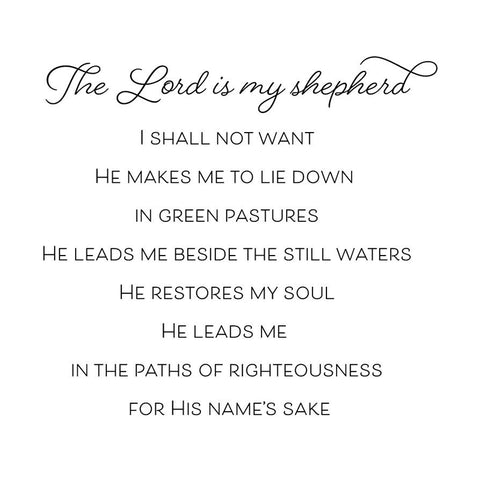 The Lord is my shepherd
I SHALL NOT WANT
HE MAKES ME TO LIE DOWN
IN GREEN PASTURES
HE LEADS ME BESIDE THE STILL WATERS
HE RESTORES MY SOUL
HE LEADS ME
IN THE PATHS OF RIGHTEOUSNESS
FOR HIS NAME'S SAKE